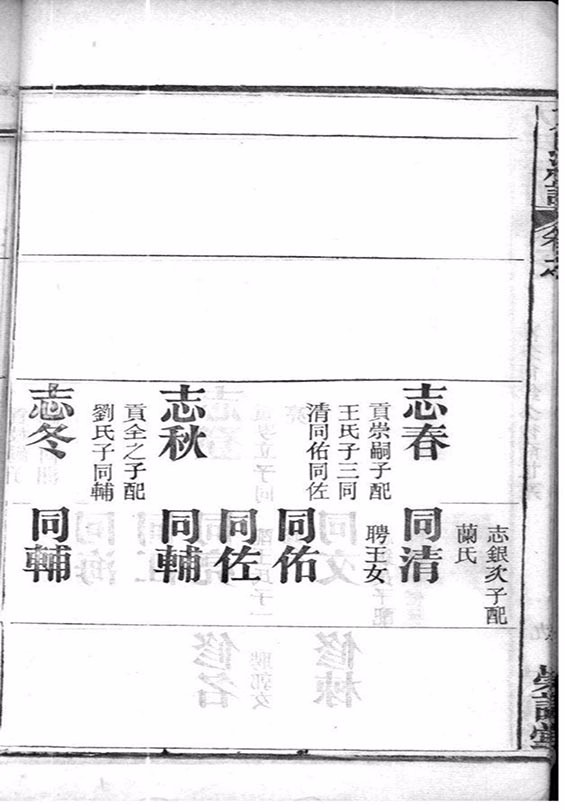 志春
貢崇嗣子配
王氏子三同
清同佑同佐
志秋
貢全之子配
劉氏子同輔
志冬
志銀次子配
蘭氏
同清
聘王女
同佑
同佐
同輔
同輔